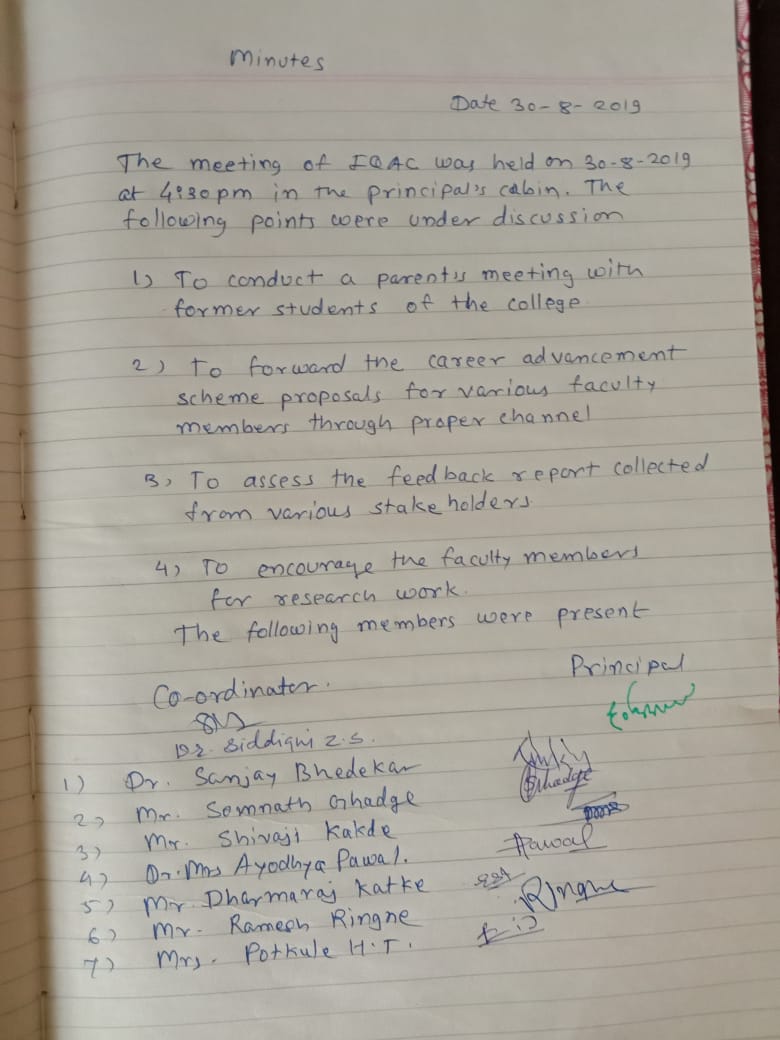 Minutes
Date 30-8-2019
The meeting of IQAC was held on 30-8-2019
at 4:30pm in the principal's cabin. The
following points were under discussion
1) To conduct a parent's meeting with
former students of the college
2) To forward the career advancement
scheme proposals for various faculty
members through proper channel
3, To assess the feedback report collected
from various stake holders
4) To encourage the faculty members
for research work.
The following members were present
Principal
Co-ordinator.
Dr. Siddiqui Z.S.
1) Dr. Sanjay Bhedekar
2) Mr. Somnath Ghadge Ghadge
3) Mr. Shivaji Kakde
4) Dr. Mrs Ayodhya Pawal. Pawal
5) Mr Dharmaraj Katke
6) Mr. Ramesh Ringne Ringne
7) Mrs. Potkule H.T.